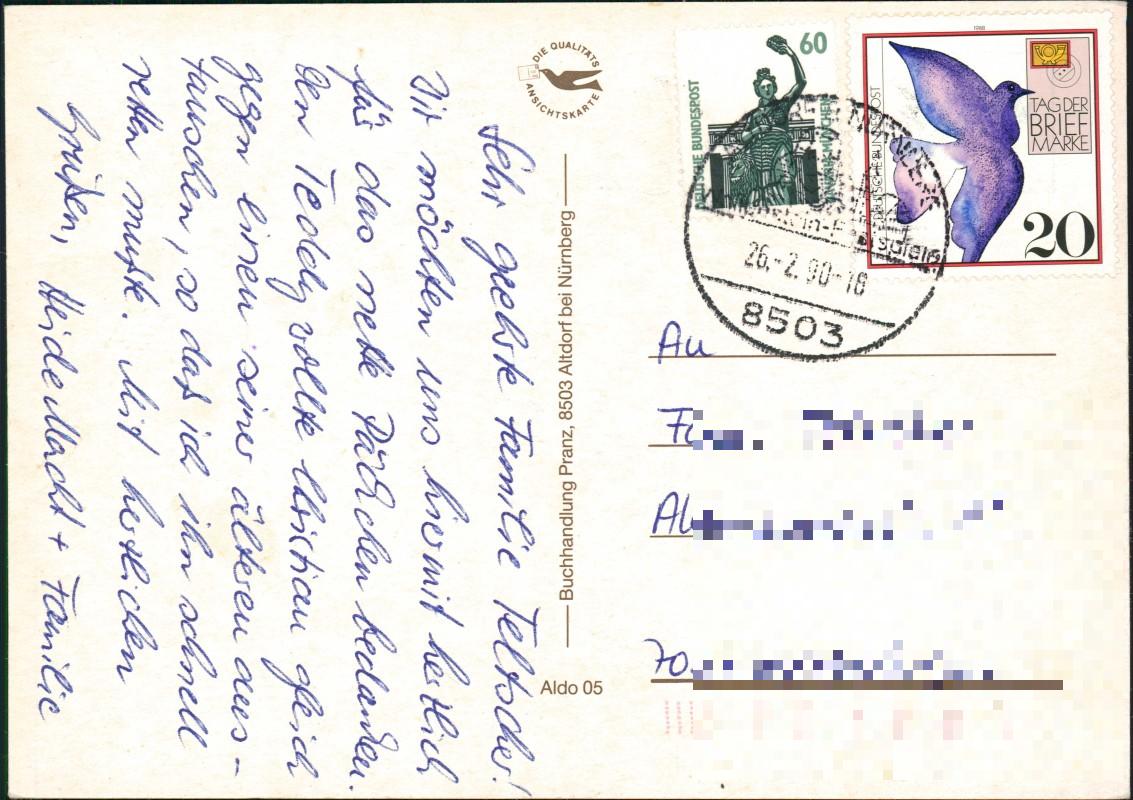 Sehr geehrte Familie Teltscher!
Wir möchten uns hiermit herzlich
für das nette Päckchen bedanken.
Den Teddy wollte Christian gleich
gegen einen seiner älteren aus-
tauschen, so daß ich ihn schnell
retten mußte. Mit herzlichen
Grüßen, Heide Macht + Familie
DIE QUALITÄTS
ANSICHTSKARTE
Buchhandlung Pranz, 8503 Altdorf bei Nürnberg
Aldo 05
60
DEUTSCHE BUNDESPOST
BAVARIA MÜNCHEN
1988
TAG DER
BRIEF
MARKE
DEUTSCHE BUNDESPOST
20
26.-2.90-18
8503
An